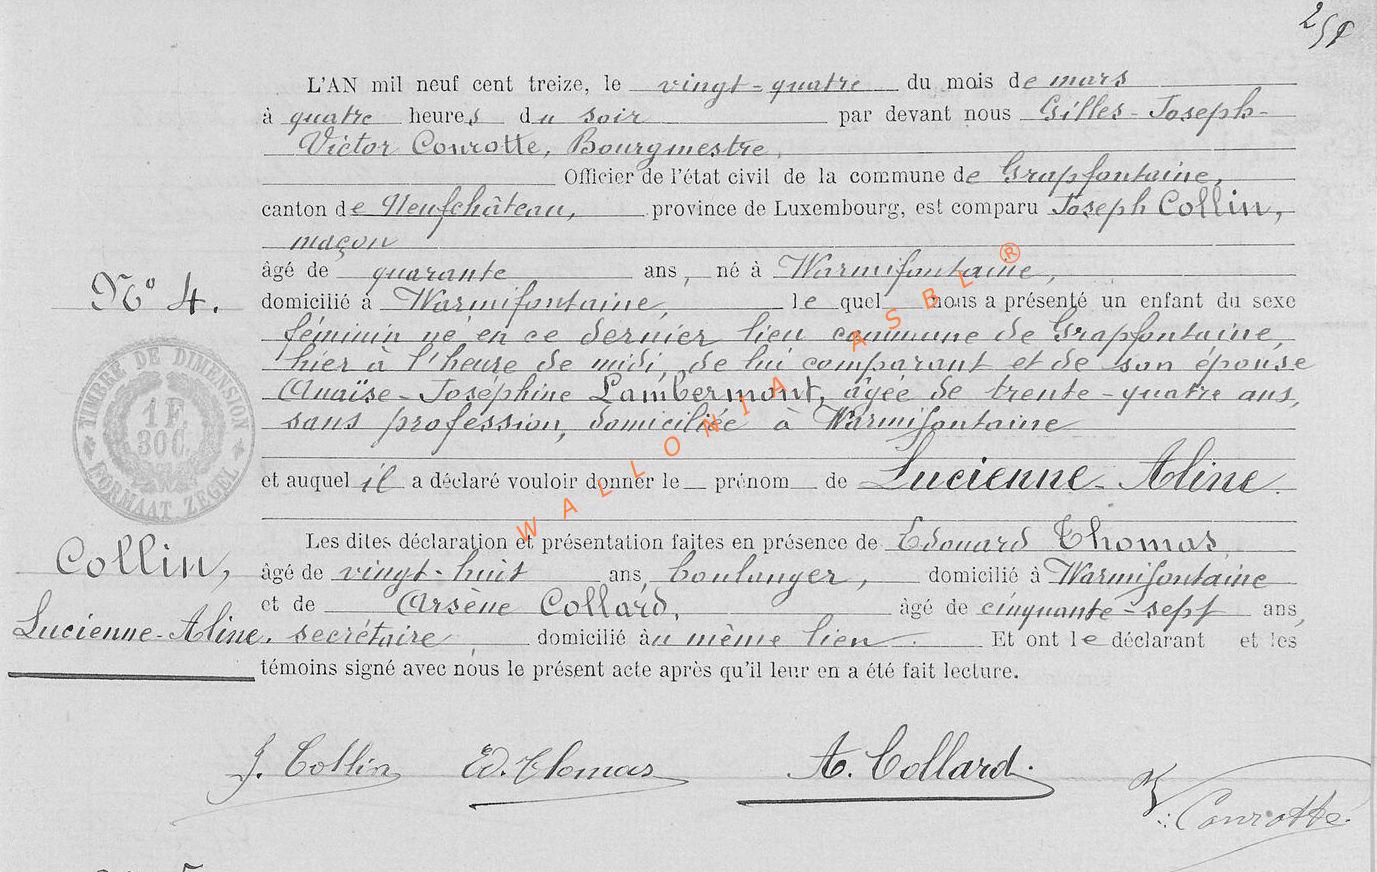 251
L'AN mil neuf cent treize, le vingt-quatre du mois de mars
à quatre heures du soir par devant nous Gilles-Joseph-
Victor Conrotte, Bourgmestre,
Officier de l'état civil de la commune de Grapfontaine,
canton de Neufchâteau, province de Luxembourg, est comparu Joseph Collin,
maçon
âgé de quarante ans, né à Warmifontaine,
N° 4.
domicilié à Warmifontaine, lequel nous a présenté un enfant du sexe
féminin né en ce dernier lieu commune de Grapfontaine,
hier à l'heure de midi, de lui comparant et de son épouse
Anaïse-Joséphine Lambermont, âgée de trente-quatre ans,
sans profession, domiciliée à Warmifontaine
TIMBRE DE DIMENSION
1 F.
30 C.
FORMAAT ZEGEL
et auquel il a déclaré vouloir donner le prénom de Lucienne-Aline.
Les dites déclaration et présentation faites en présence de Edouard Thomas,
Collin,
âgé de vingt-huit ans, boulanger, domicilié à Warmifontaine
et de Arsène Collard, âgé de cinquante-sept ans,
Lucienne-Aline.
secrétaire, domicilié au même lieu. Et ont le déclarant et les
témoins signé avec nous le présent acte après qu'il leur en a été fait lecture.
J. Collin Ed. Thomas A. Collard. V. Conrotte.
WALLONIA ASBL ®